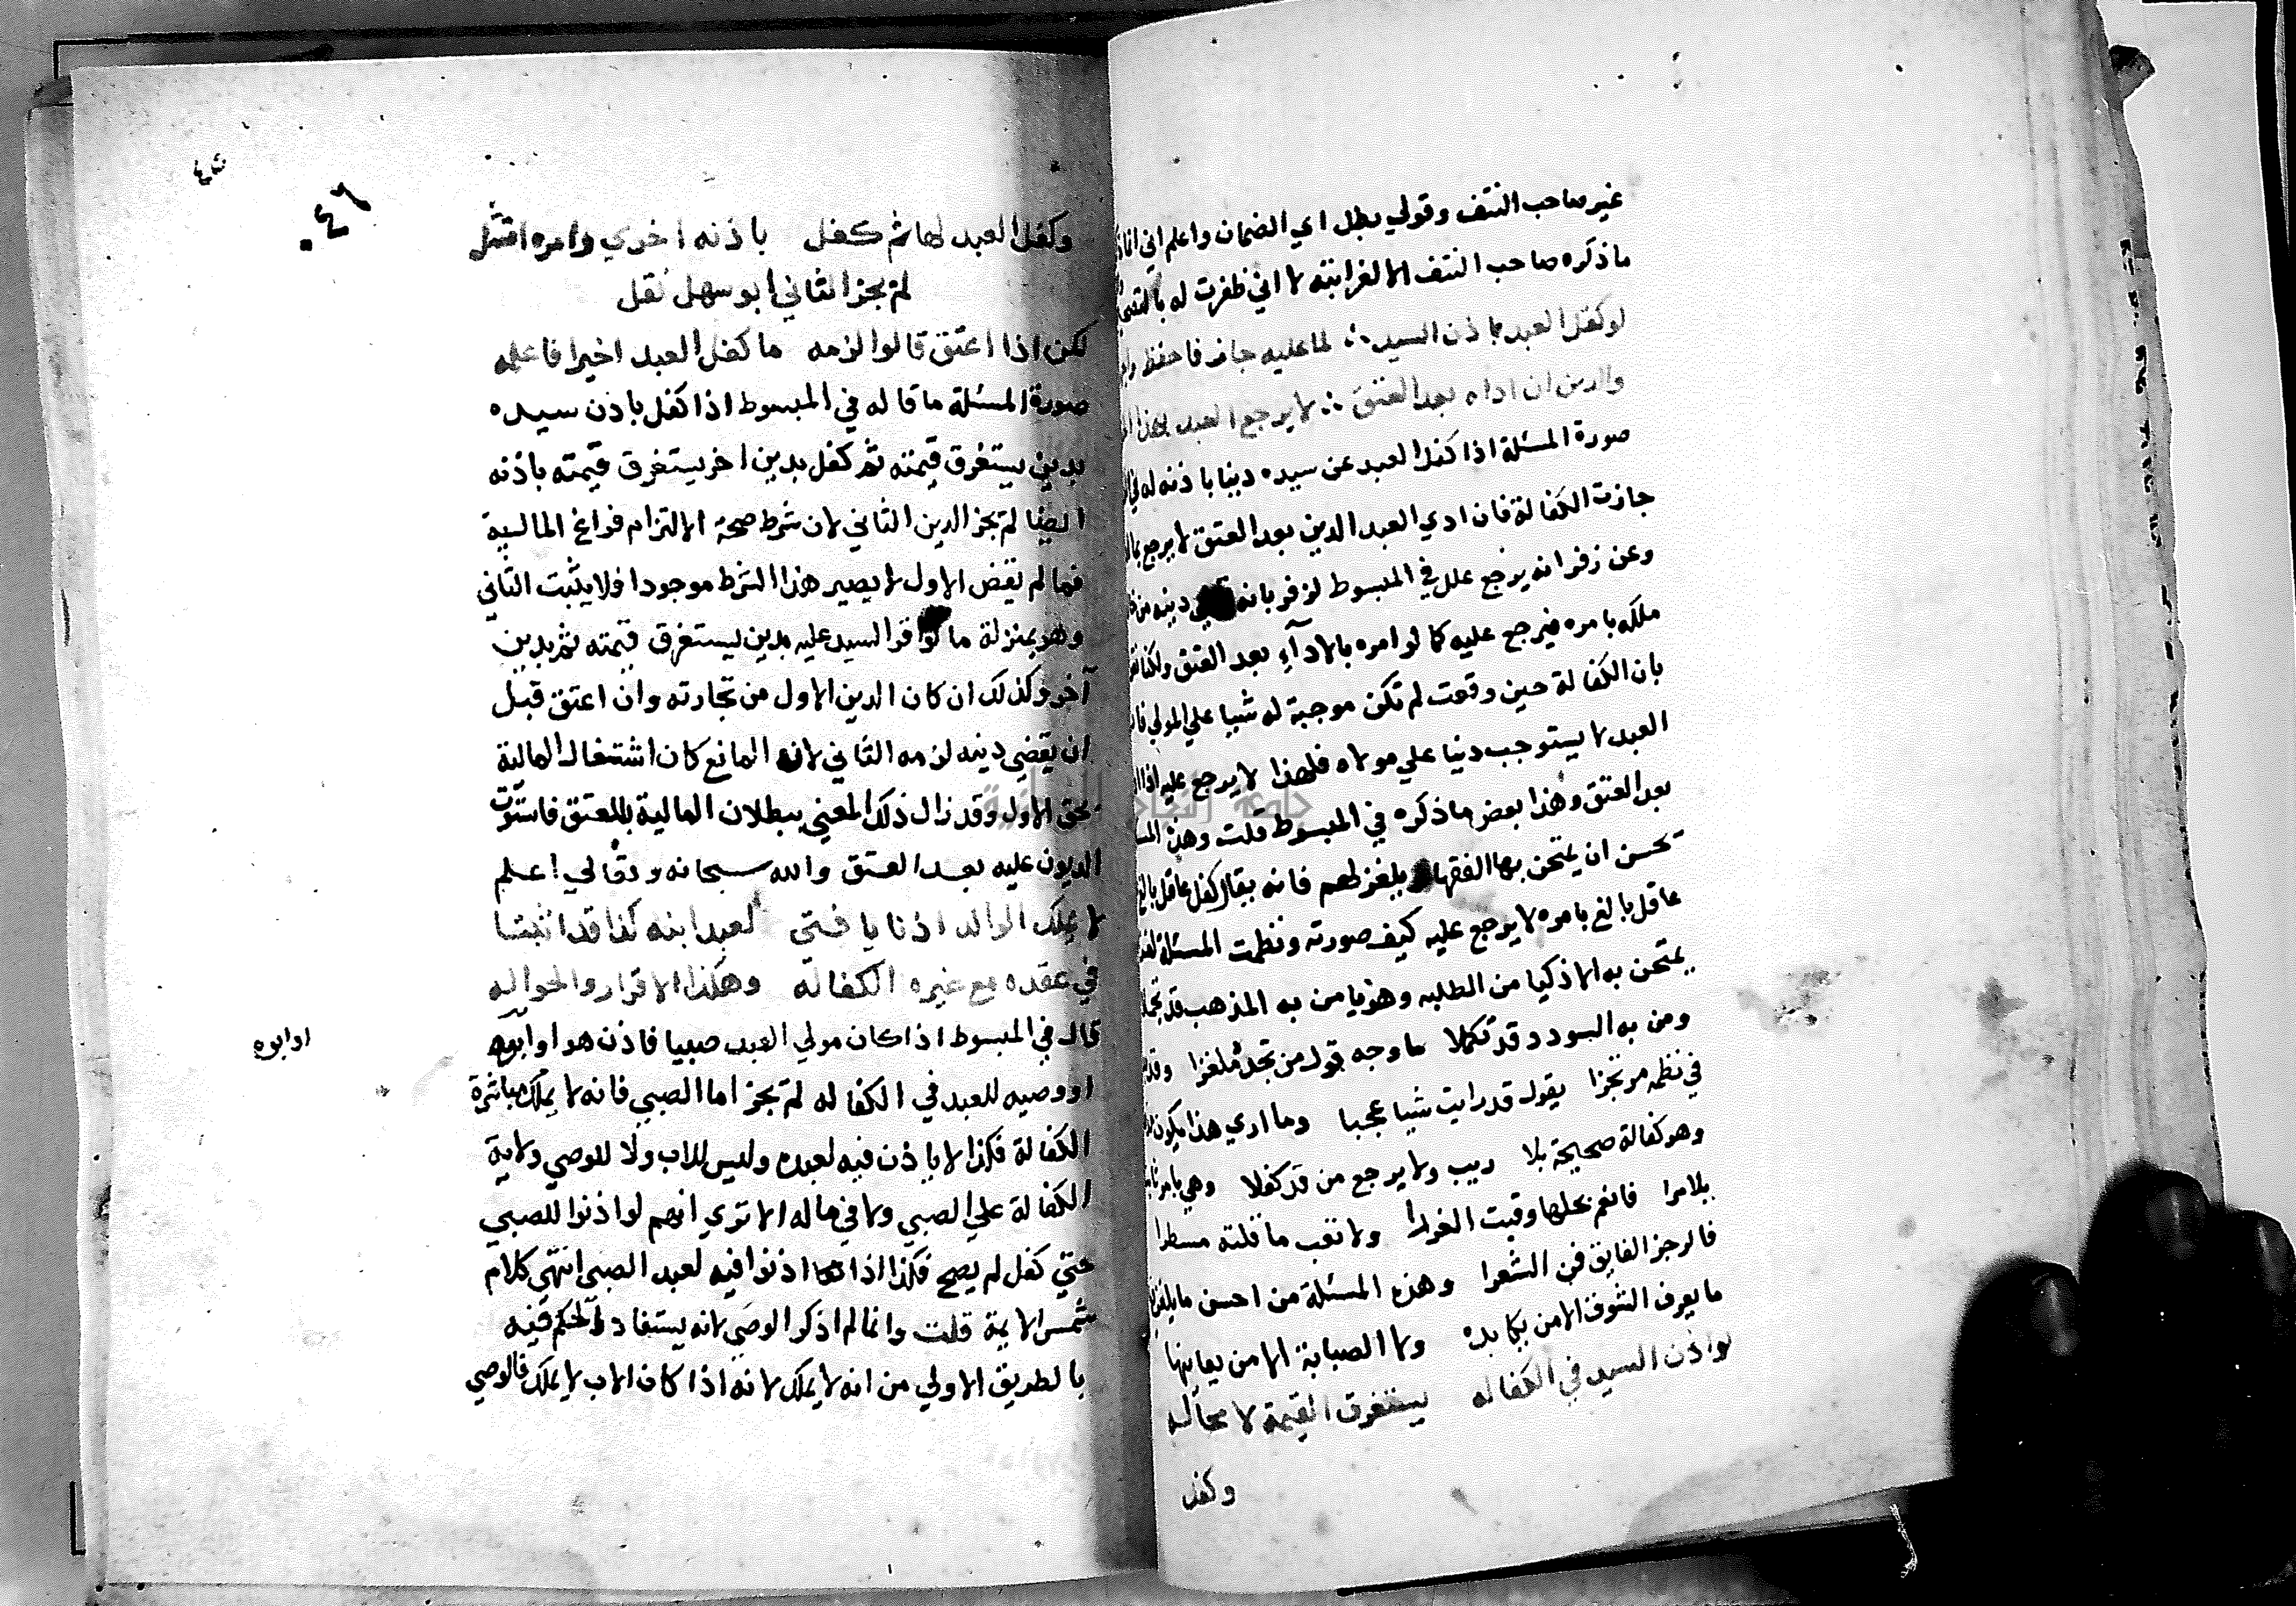 غير صاحب النتف وقولي بطل اي الضمان واعلم اني
ما ذكره صاحب النتف الا لغرابته لا اني ظفرت له
لو كفل العبد باذن السيد ∴ لما عليه جاز فاحفظ
والدين ان اداه بعد العتق ∴ لا يرجع العبد بهذا
صورة المسئلة اذا كفل العبد عن سيده دينا باذنه له
جازت الكفالة فان ادي العبد الدين بعد العتق لا يرجع
وعن زفر انه يرجع علل في المبسوط لزفر بانه دينه من
ملكه بامره فيرجع عليه كما لو امره بالادآء بعد العتق ولكنا
بان الكفالة حين وقعت لم تكن موجبة له شيا علي المولي
العبد لا يستوجب دينا علي مولاه فلهذا لا يرجع عليه اذا
بعد العتق وهذا بعض ما ذكره في المبسوط قلت وهذه
تحسن ان يمتحن بها الفقها ويلغز لهم فانه يقال كفل عاقل بالغ
عاقل بالغ بامره لا يرجع عليه كيف صورته ونظمت المسئلة
يمتحن به الاذكيا من الطلبه وهو يا من به المذهب قد
ومن به السودد قد تكملا ما وجه قول من تجد ملغزا
في نظمه مرتجزا يقول قد رايت شيا عجبا وما اري هذا يكون
وهو كفالة صحيحة بلا ريب ولا يرجع من قد كفلا وهي بامر
بلا مرا فانعم بحلها وقيت الخررا ولا تعب ما قلته مسطرا
فالرجز الفايق فن الشعرا وهذه المسئلة من احسن ما يلغز
ما يعرف الشوق الا من يكابده ولا الصبابة الا من يعانيها
لو اذن السيد في الكفاله يستغرق القيمة لا محاله
وكفل
٤٥
٤٦
وكفل العبد لها ثم كفل باذنه اخري وامره امتثل
لم يجز الثاني ابو سهل نقل
لكن اذا اعتق قالوا لزمه ما كفل العبد اخيرا فاعلمه
صورة المسئلة ما قاله في المبسوط اذا كفل باذن سيده
بدين يستغرق قيمته ثم كفل بدين اخر يستغرق قيمته باذنه
ايضا لم يجز الدين الثاني لان شرط صحة الالتزام فراغ المالية
فما لم يقض الاول لا يصير هذا الشرط موجودا فلا يثبت الثاني
وهو بمنزلة ما لو اقر السيد عليه بدين يستغرق قيمته ثم بدين
آخر وكذلك ان كان الدين الاول من تجارته وان اعتق قبل
ان يقضي دينه لزمه الثاني لان المانع كان اشتغال المالية
بحق الاول وقد زال ذلك المعني ببطلان المالية بالعتق فاستوت
الديون عليه بعد العتق والله سبحانه وتعالي اعلم
لا يملك الوالد اذنا يا فتي لعبد ابنه كذا قد اثبتا
في عقده مع غيره الكفاله وهكذا الاقرار والحواله
قال في المبسوط اذا كان مولي العبد صبيا فاذن هو او ابوه
او ابوه
او وصيه للعبد في الكفاله لم يجز اما الصبي فانه لا يملك مباشرة
الكفالة فكذا لا ياذن فيه لعبده وليس للاب ولا للوصي ولاية
الكفالة علي الصبي ولا في ماله الا تري انهم لو اذنوا للصبي
حتي كفل لم يصح فكذا اذا اذنوا فيه لعبد الصبي انتهي كلام
شمس الايمة قلت وانما لم اذكر الوصي لانه يستفاد الحكم فيه
بالطريق الاولي من انه لا يملك لانه اذا كان الاب لا يملك فالوصي